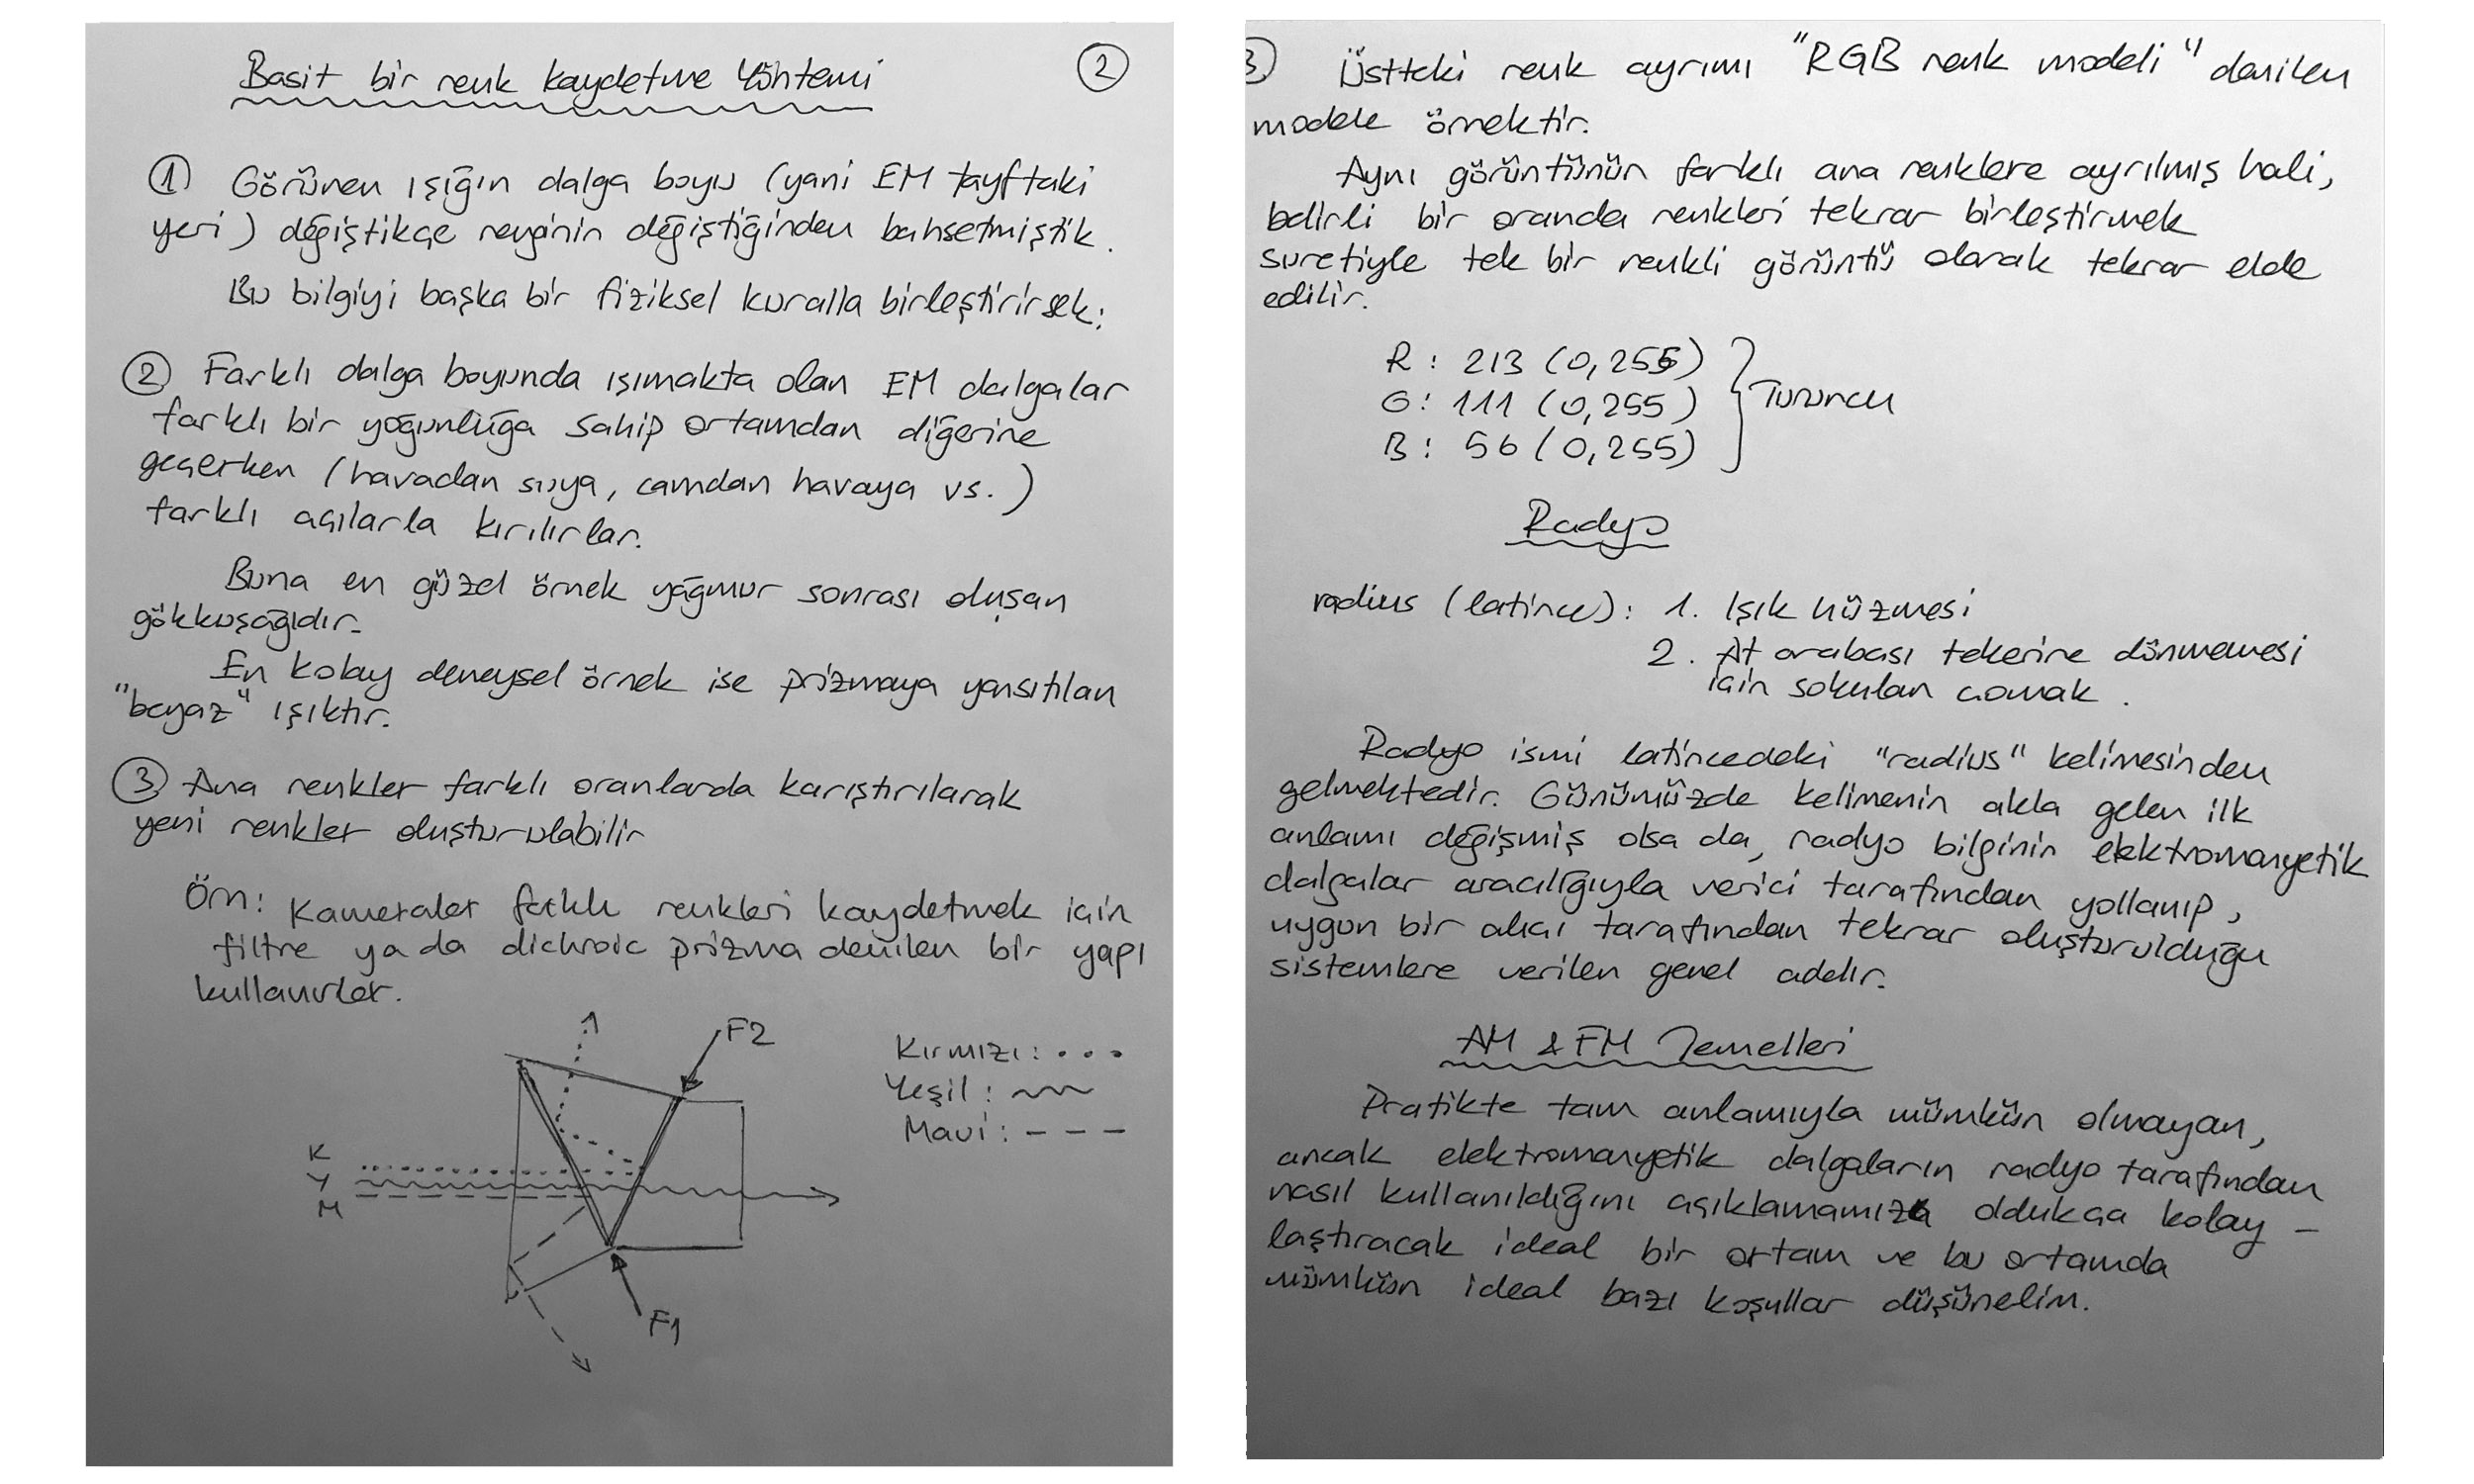 Basit bir renk kaydetme Yöntemi
2
1 Görünen ışığın dalga boyu (yani EM tayftaki
yeri) değiştikçe renginin değiştiğinden bahsetmiştik.
Bu bilgiyi başka bir fiziksel kuralla birleştirirsek:
2 Farklı dalga boyunda ışımakta olan EM dalgalar
farklı bir yoğunluğa sahip ortamdan diğerine
geçerken (havadan suya, camdan havaya vs.)
farklı açılarla kırılırlar.
Buna en güzel örnek yağmur sonrası oluşan
gökkuşağıdır.
En kolay deneysel örnek ise prizmaya yansıtılan
"beyaz" ışıktır.
3 Ana renkler farklı oranlarda karıştırılarak
yeni renkler oluşturulabilir
Örn: Kameralar farklı renkleri kaydetmek için
filtre ya da dichroic prizma denilen bir yapı
kullanırlar.
F2
Kırmızı: . . .
Yeşil :
Mavi : - - -
K
Y
M
F1
3) Üstteki renk ayrımı "RGB renk modeli" denilen
modele örnektir.
Aynı görüntünün farklı ana renklere ayrılmış hali,
belirli bir oranda renkleri tekrar birleştirmek
suretiyle tek bir renkli görüntü olarak tekrar elde
edilir.
R : 213 (0,255)
G : 111 (0,255) Turuncu
B : 56 (0,255)
Radyo
radius (latince): 1. Işık hüzmesi
2. At arabası tekerine dönmemesi
için sokulan çomak.
Radyo ismi latincedeki "radius" kelimesinden
gelmektedir. Günümüzde kelimenin akla gelen ilk
anlamı değişmiş olsa da, radyo bilginin elektromanyetik
dalgalar aracılığıyla verici tarafından yollanıp,
uygun bir alıcı tarafından tekrar oluşturulduğu
sistemlere verilen genel addır.
AM & FM Temelleri
Pratikte tam anlamıyla mümkün olmayan,
ancak elektromanyetik dalgaların radyo tarafından
nasıl kullanıldığını açıklamamıza oldukça kolay-
laştıracak ideal bir ortam ve bu ortamda
mümkün ideal bazı koşullar düşünelim.